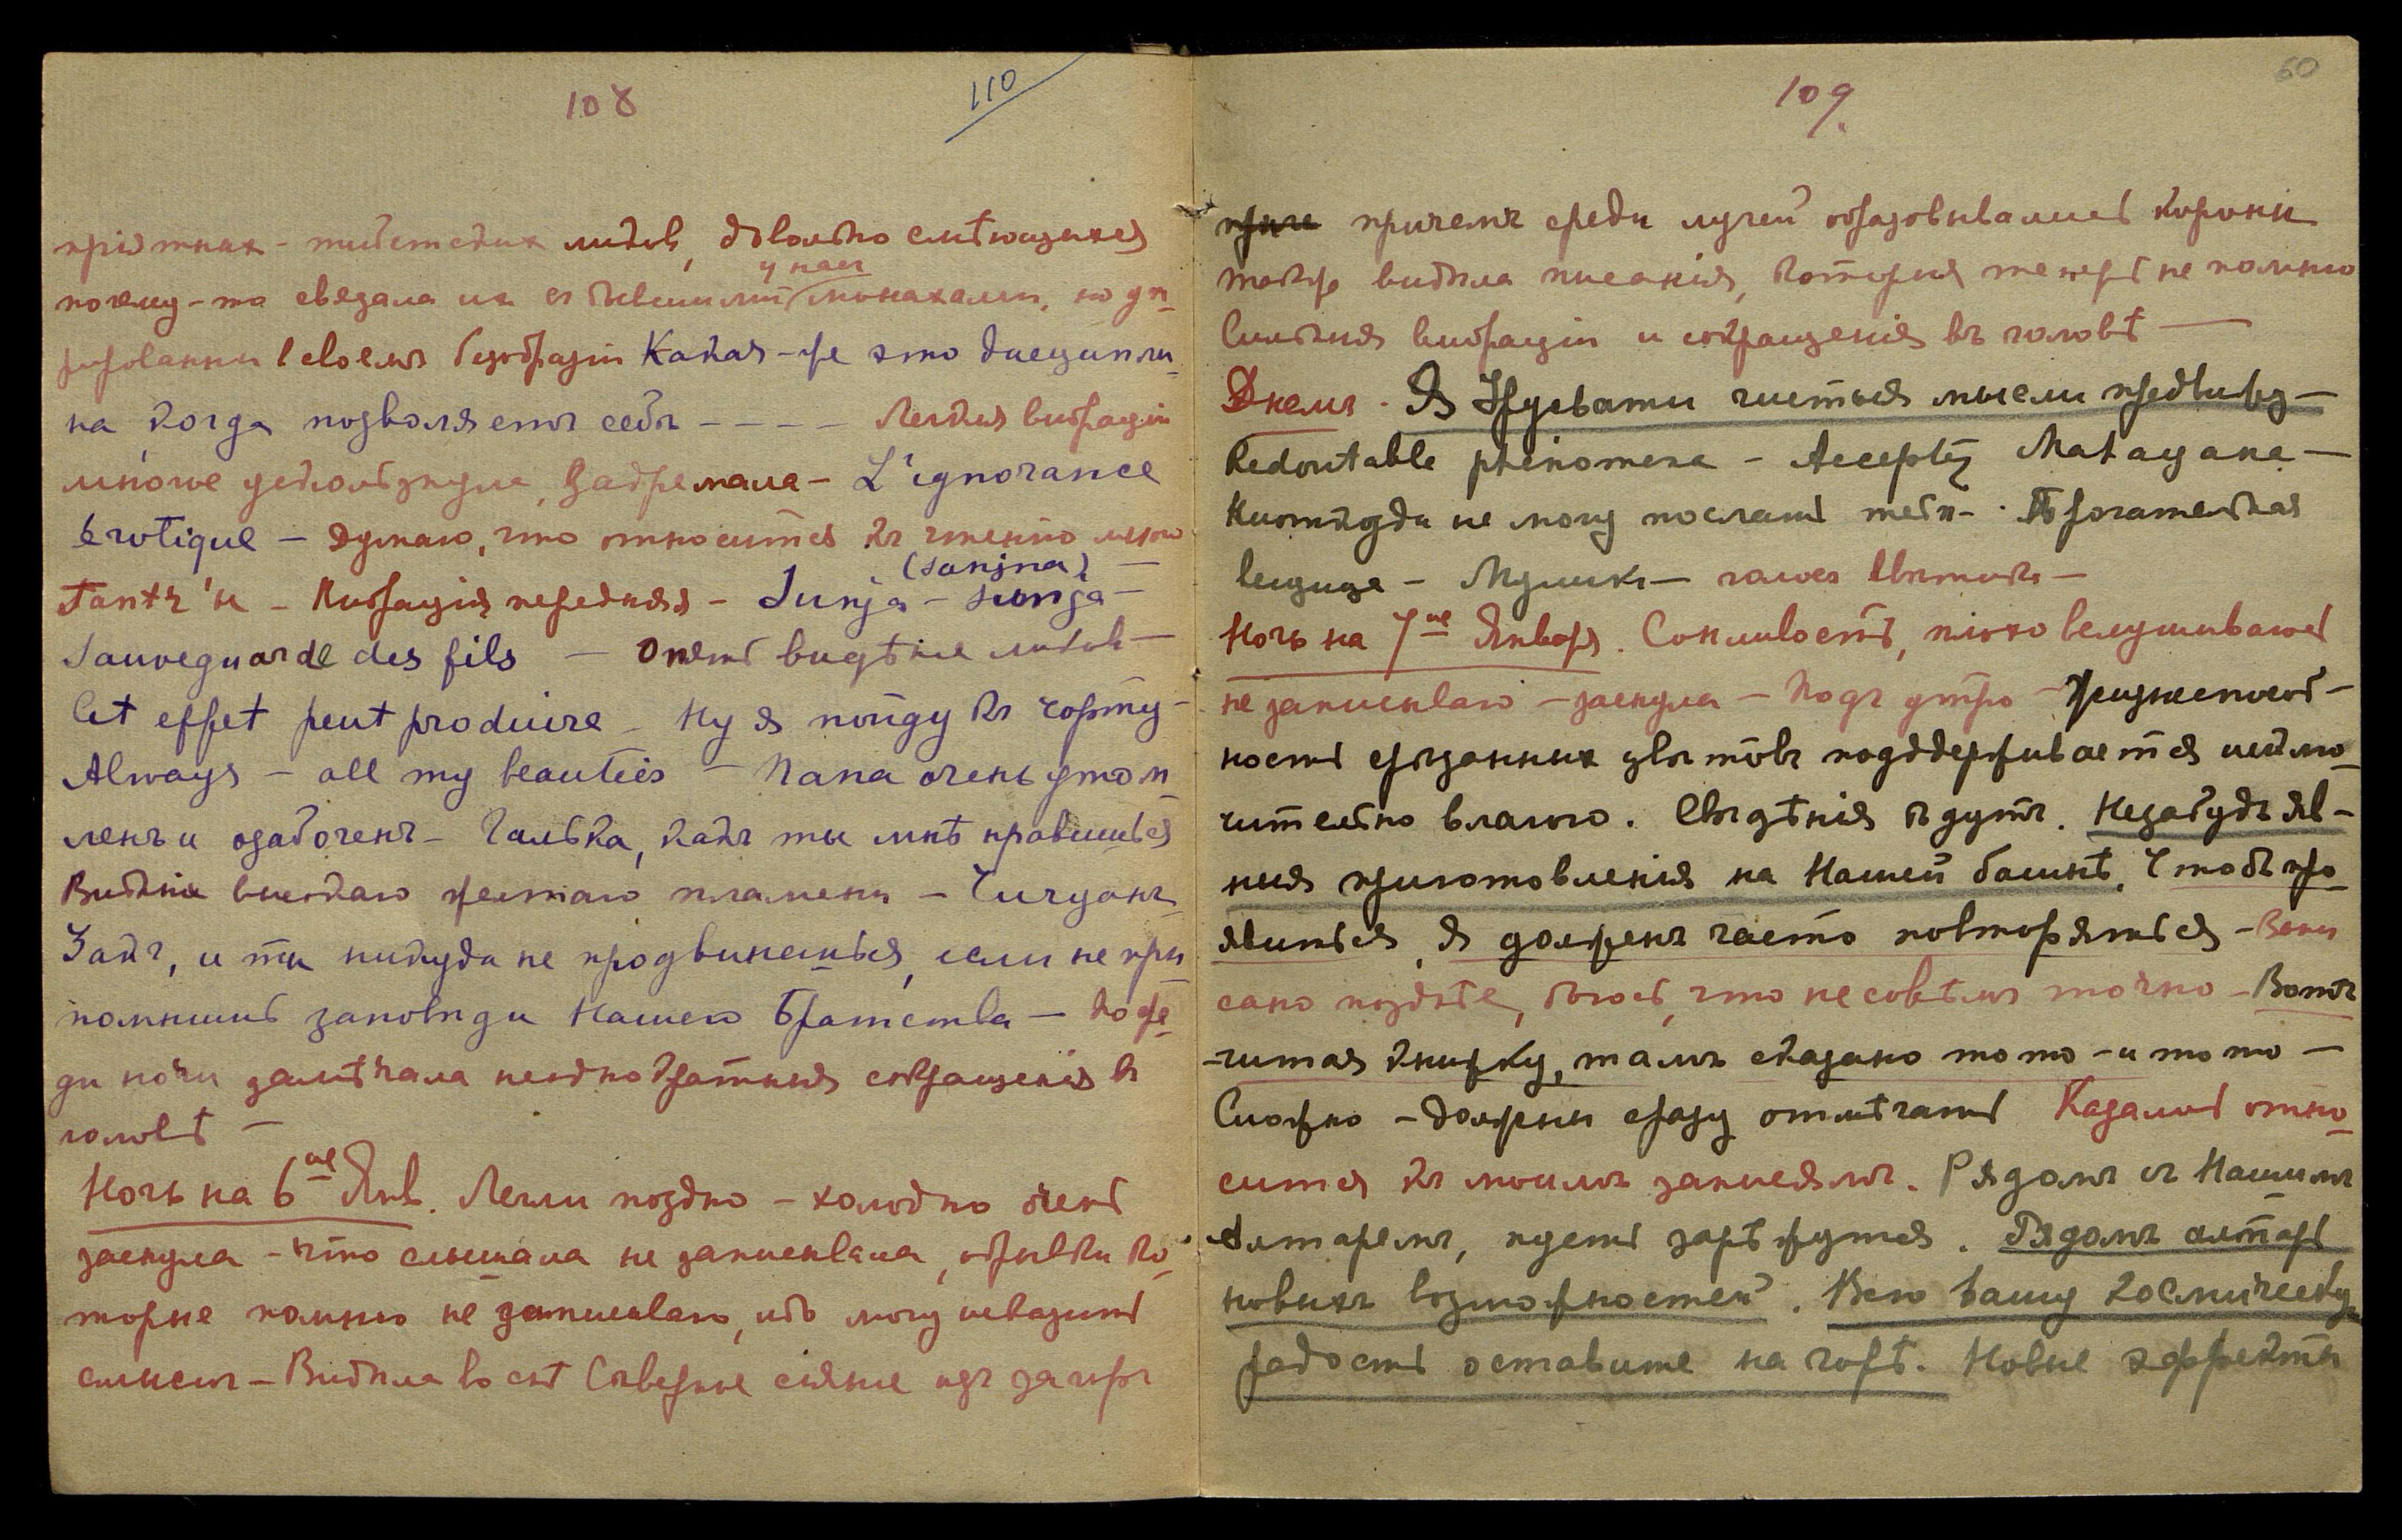 108
110
пріятных - тибетских ликов, довольно смѣющихся
у нас
почему-то связала их с бывшими монахами, но
в своем безобразіи Какая-же это дисципли-
на когда позволяетъ себѣ - - - - Легкія вибраціи
мною ускользнуло, задремала - L'ignorance
érotique - Думаю, что относится къ чтенію мною
(sanjna) -
Tantr'ы - Вибрація передняя - Junja - sunja -
Sauveguarde des fils - Опять видѣніе ликов -
Cet effet peut produire - Ну я пойду къ чорту -
Always - all my beauties - Папа очень утом-
ленъ и озабоченъ - Галька, какъ ты мнѣ нравишься
Видѣніе высокаго желтаго пламени -
Знай, и ты никуда не продвинешься, если не при-
помнишь заповѣди Нашего Братства -
ди ночи замѣчала неоднократныя сокращенія в
головѣ -
Ночь на 6ое Янв. Легли поздно - холодно очень
заснула - что слышала не записывала, обрывки ко-
торые помню не записываю, ибо могу исказить
смыслъ - Видѣла во снѣ Сѣверное сіяніе изъ за горъ
109.
60
приче причемъ среди лучей образовывались короны
также видѣла писанія, которыя теперь не помню
Сильныя вибраціи и сокращенія въ головѣ -
Днемъ - Я Урусвати чистыя мысли предвижу -
Redoutable phenomena - Acceptez Mahayana -
Ниоткуда не могу послать тебѣ -
вещица - Мушка - голос Святослава -
Ночь на 7ое Января. Сонливость, плохо вслушиваюсь
не записываю - заснула - Подъ утро - Жизнеспособ-
ность срѣзанныхъ цвѣтовъ поддерживается исклю-
чительно влагою. Свѣдѣнія будутъ. Незабудь яв-
ныя приготовленія на Нашей башнѣ. Чтобъ про-
явиться, я долженъ часто повторяться - Запи-
сано позднѣе, боюсь, что не совсѣмъ точно - Вотъ
- читая книжку, тамъ сказано то то - и то то -
Сложно - должны сразу отмѣчать Казалось отно-
сится къ моимъ записямъ. Рядомъ съ Нашимъ
Алтаремъ, пусть зарѣжутся. Рядомъ алтарь
новыхъ возможностей. Всю вашу космическую
радость оставите на горѣ. Новые эффекты